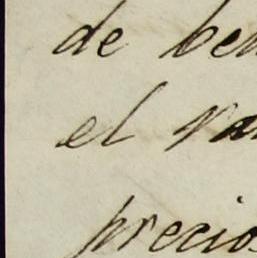 de ben
el va
precio